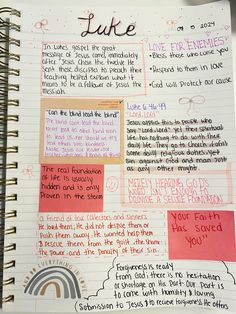 Luke
5 2024
In Luke's gospel the great
message of Jesus came immediately
after Jesus chose the twelve. He
sent these disciples to preach their
teaching helped explain what it
means to be a follower of Jesus the
Messiah.
LOVE FOR "ENEMIES"
- Bless those who curse you
- Respond to them in love
- God will protect our cause
"Can the blind lead the blind"
Luke 6:46-49
"Lord, Lord"
Jesus applies this to people who
say "Lord, Lord", yet their spiritual
life has nothing to do with their
daily life. They go to church & fulfill
some daily religious duties yet
sin against God and man just
as any other might.
The real foundation
of life is usually
hidden and is only
proven in the storm
MERELY HEARING GOD'S
WORD ISN'T ENOUGH TO
PROVIDE A SECURE FOUNDATION
a friend of tax collectors and sinners
He loved them; He did not despise them or
push them away. He wanted help them
& rescue them from the guilt, the shame,
the power and the penalty of their sins.
"Your Faith
Has Saved
you"
Forgiveness is ready
from God; there is no hesitation
or shortage on His part. Our part is
to come with humility & loving
submission to Jesus & to receive forgiveness He offers